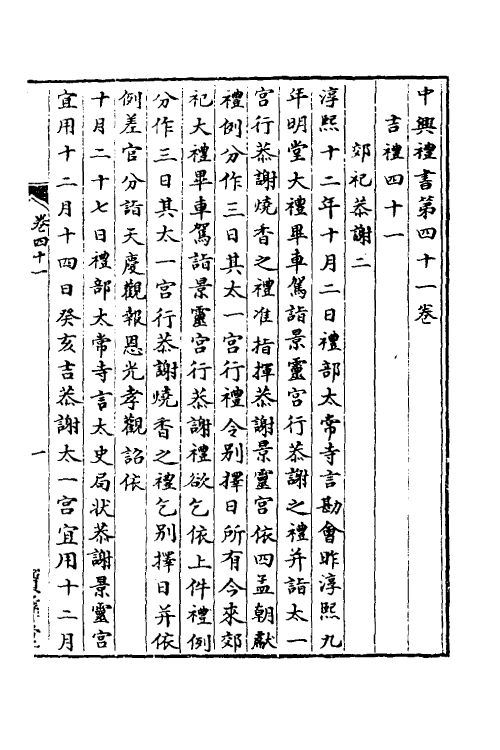 中興禮書第四十一卷
吉禮四十一
郊祀恭謝二
淳熙十二年十月二日禮部太常寺言勘會昨淳熙九
年明堂大禮畢車駕詣景靈宮行恭謝之禮并詣太一
宮行恭謝燒香之禮准指揮恭謝景靈宮依四孟朝獻
禮例分作三日其太一宮行禮令別擇日所有今來郊
祀大禮畢車駕詣景靈宮行恭謝禮欲乞依上件禮例
分作三日其太一宮行恭謝燒香之禮乞別擇日并依
例差官分詣天慶觀報恩光孝觀詔依
十月二十七日禮部太常寺言太史局狀恭謝景靈宮
宜用十二月十四日癸亥吉恭謝太一宮宜用十二月
卷四十一
一